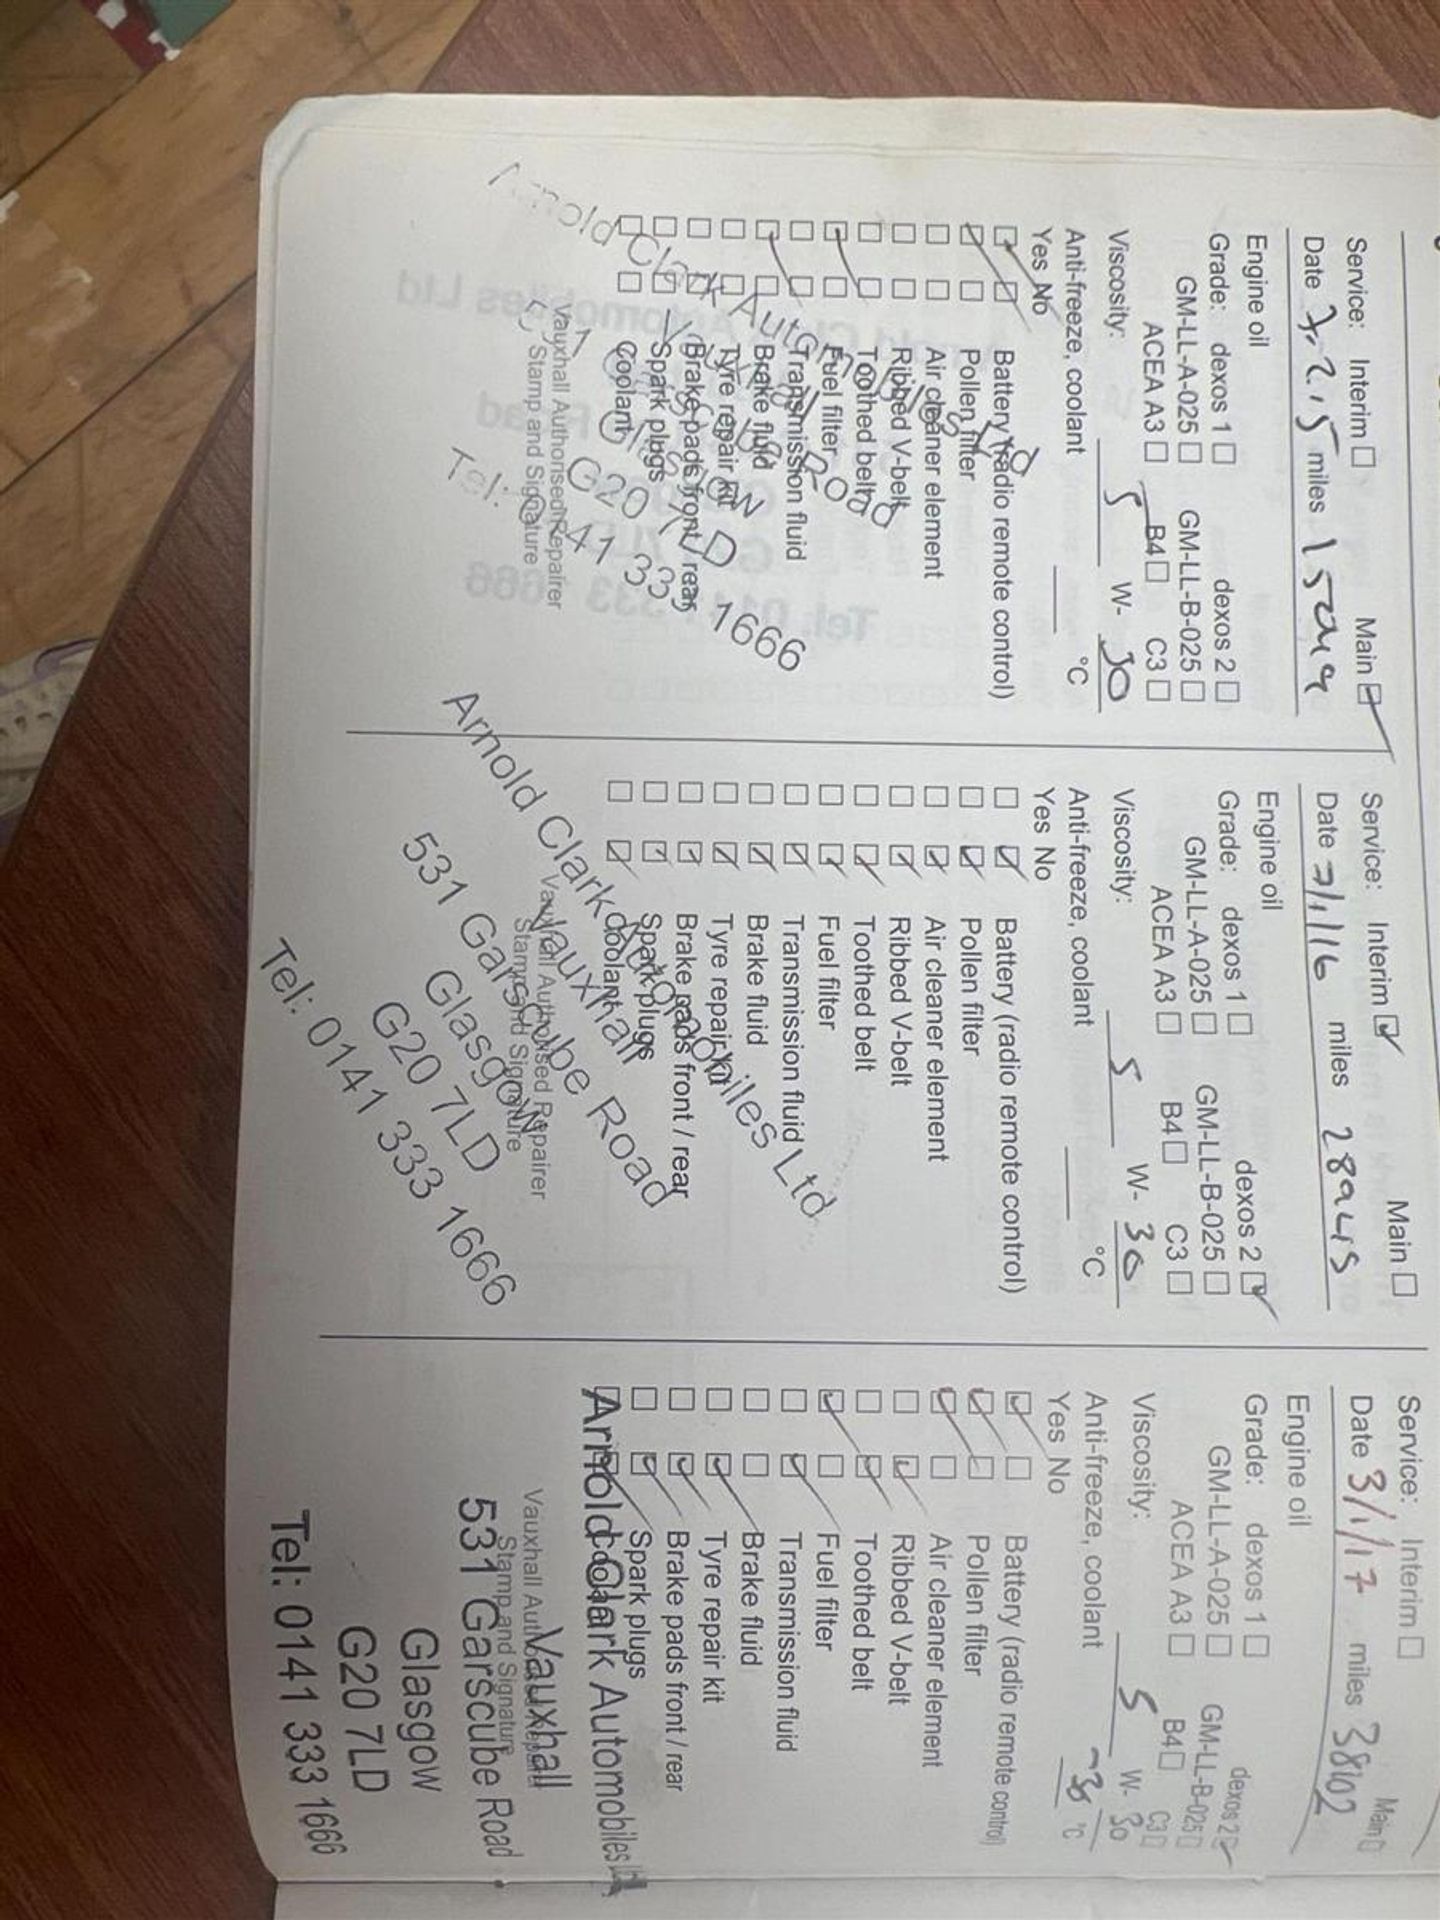 Service: Interim Main
Date 3.2.15 miles
Engine oil
Grade: dexos 1 dexos 2
GM-LL-A-025 GM-LL-B-025
ACEA A3 B4 C3
Viscosity: 5 W- 30
Anti-freeze, coolant °C
Yes No
Battery (radio remote control)
Pollen filter
Air cleaner element
Ribbed V-belt
Toothed belt
Fuel filter
Transmission fluid
Brake fluid
Tyre repair kit
Brake pads front / rear
Spark plugs
Coolant
Vauxhall Authorised Repairer
Stamp and Signature
Arnold Clark Automobiles Ltd
Vauxhall
531 Garscube Road
Glasgow
G20 7LD
Tel: 0141 333 1666
Service: Interim Main
Date 7/1/16 miles 28945
Engine oil
Grade: dexos 1 dexos 2
GM-LL-A-025 GM-LL-B-025
ACEA A3 B4 C3
Viscosity: 5 W- 30
Anti-freeze, coolant °C
Yes No
Battery (radio remote control)
Pollen filter
Air cleaner element
Ribbed V-belt
Toothed belt
Fuel filter
Transmission fluid
Brake fluid
Tyre repair kit
Brake pads front / rear
Spark plugs
Coolant
Vauxhall Authorised Repairer
Stamp and Signature
Arnold Clark Automobiles Ltd
Vauxhall
531 Garscube Road
Glasgow
G20 7LD
Tel: 0141 333 1666
Service: Interim Main
Date 3/1/17 miles 38102
Engine oil
Grade: dexos 1 dexos 2
GM-LL-A-025 GM-LL-B-025
ACEA A3 B4 C3
Viscosity: 5 W- 30
Anti-freeze, coolant -38 °C
Yes No
Battery (radio remote control)
Pollen filter
Air cleaner element
Ribbed V-belt
Toothed belt
Fuel filter
Transmission fluid
Brake fluid
Tyre repair kit
Brake pads front / rear
Spark plugs
Coolant
Vauxhall Authorised Repairer
Stamp and Signature
Arnold Clark Automobiles Ltd
Vauxhall
531 Garscube Road
Glasgow
G20 7LD
Tel: 0141 333 1666